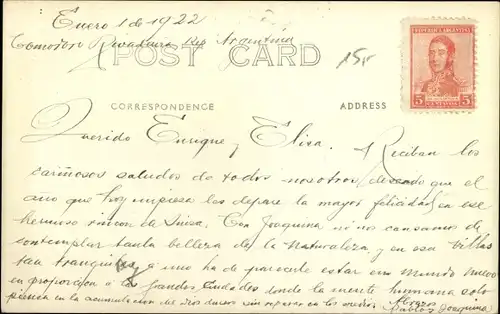 Enero 1 de 1922
Comodoro Rivadavia Rep Argentina
POST CARD
15
REPUBLICA ARGENTINA
5 5
CENTAVOS
CORRESPONDENCE
ADDRESS
Querido Enrique y Elisa. Reciban los
cariñosos saludos de todos nosotros deseando que el
año que hoy empieza les depare la mayor felicidad en ese
hermoso rincon de Suiza. Con Joaquina ni nos cansamos de
contemplar tanta belleza de la Naturaleza y en esa villas
tan tranquilas a uno ha de parecerle estar en mundo nuevo
en proporción a las grandes ciudades donde la mente humana solo
piensa en la acumulacion del dios dinero sin reparar en los medios Abrazos
Pablo y Joaquina